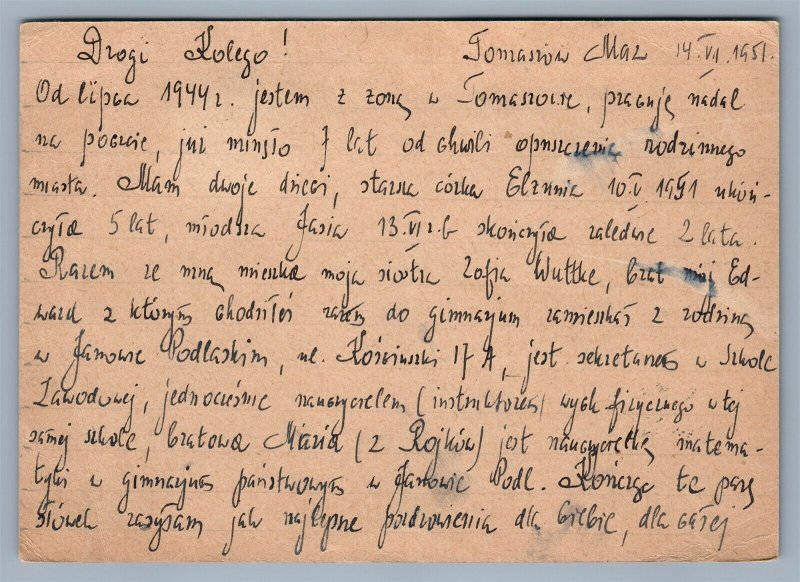 Drogi Kolego! Tomaszów Maz 14.VI.1951.
Od lipca 1944 r. jestem z żoną w Tomaszowie, pracuję nadal
na poczcie, już minęło 7 lat od chwili opuszczenia rodzinnego
miasta. Mam dwoje dzieci, starsza córka Elżunia 10.V.1951 ukoń-
czyła 5 lat, młodsza Jasia 13.VI r.b skończyła zaledwie 2 lata.
Razem ze mną mieszka moja siostra Zofia Wuttke, brat mój Ed-
ward z którym chodziłeś razem do gimnazjum zamieszkał z rodziną
w Janowie Podlaskim, ul. Kościuszki 17 A, jest sekretarzem w Szkole
Zawodowej, jednocześnie nauczycielem (instruktorem) wych. fizycznego w tej
samej szkole, bratowa Maria (z Rojków) jest nauczycielką matema-
tyki w gimnazjum państwowym w Janowie Podl. Kończąc te parę
słówek zasyłam jak najlepsze pozdrowienia dla Ciebie, dla całej